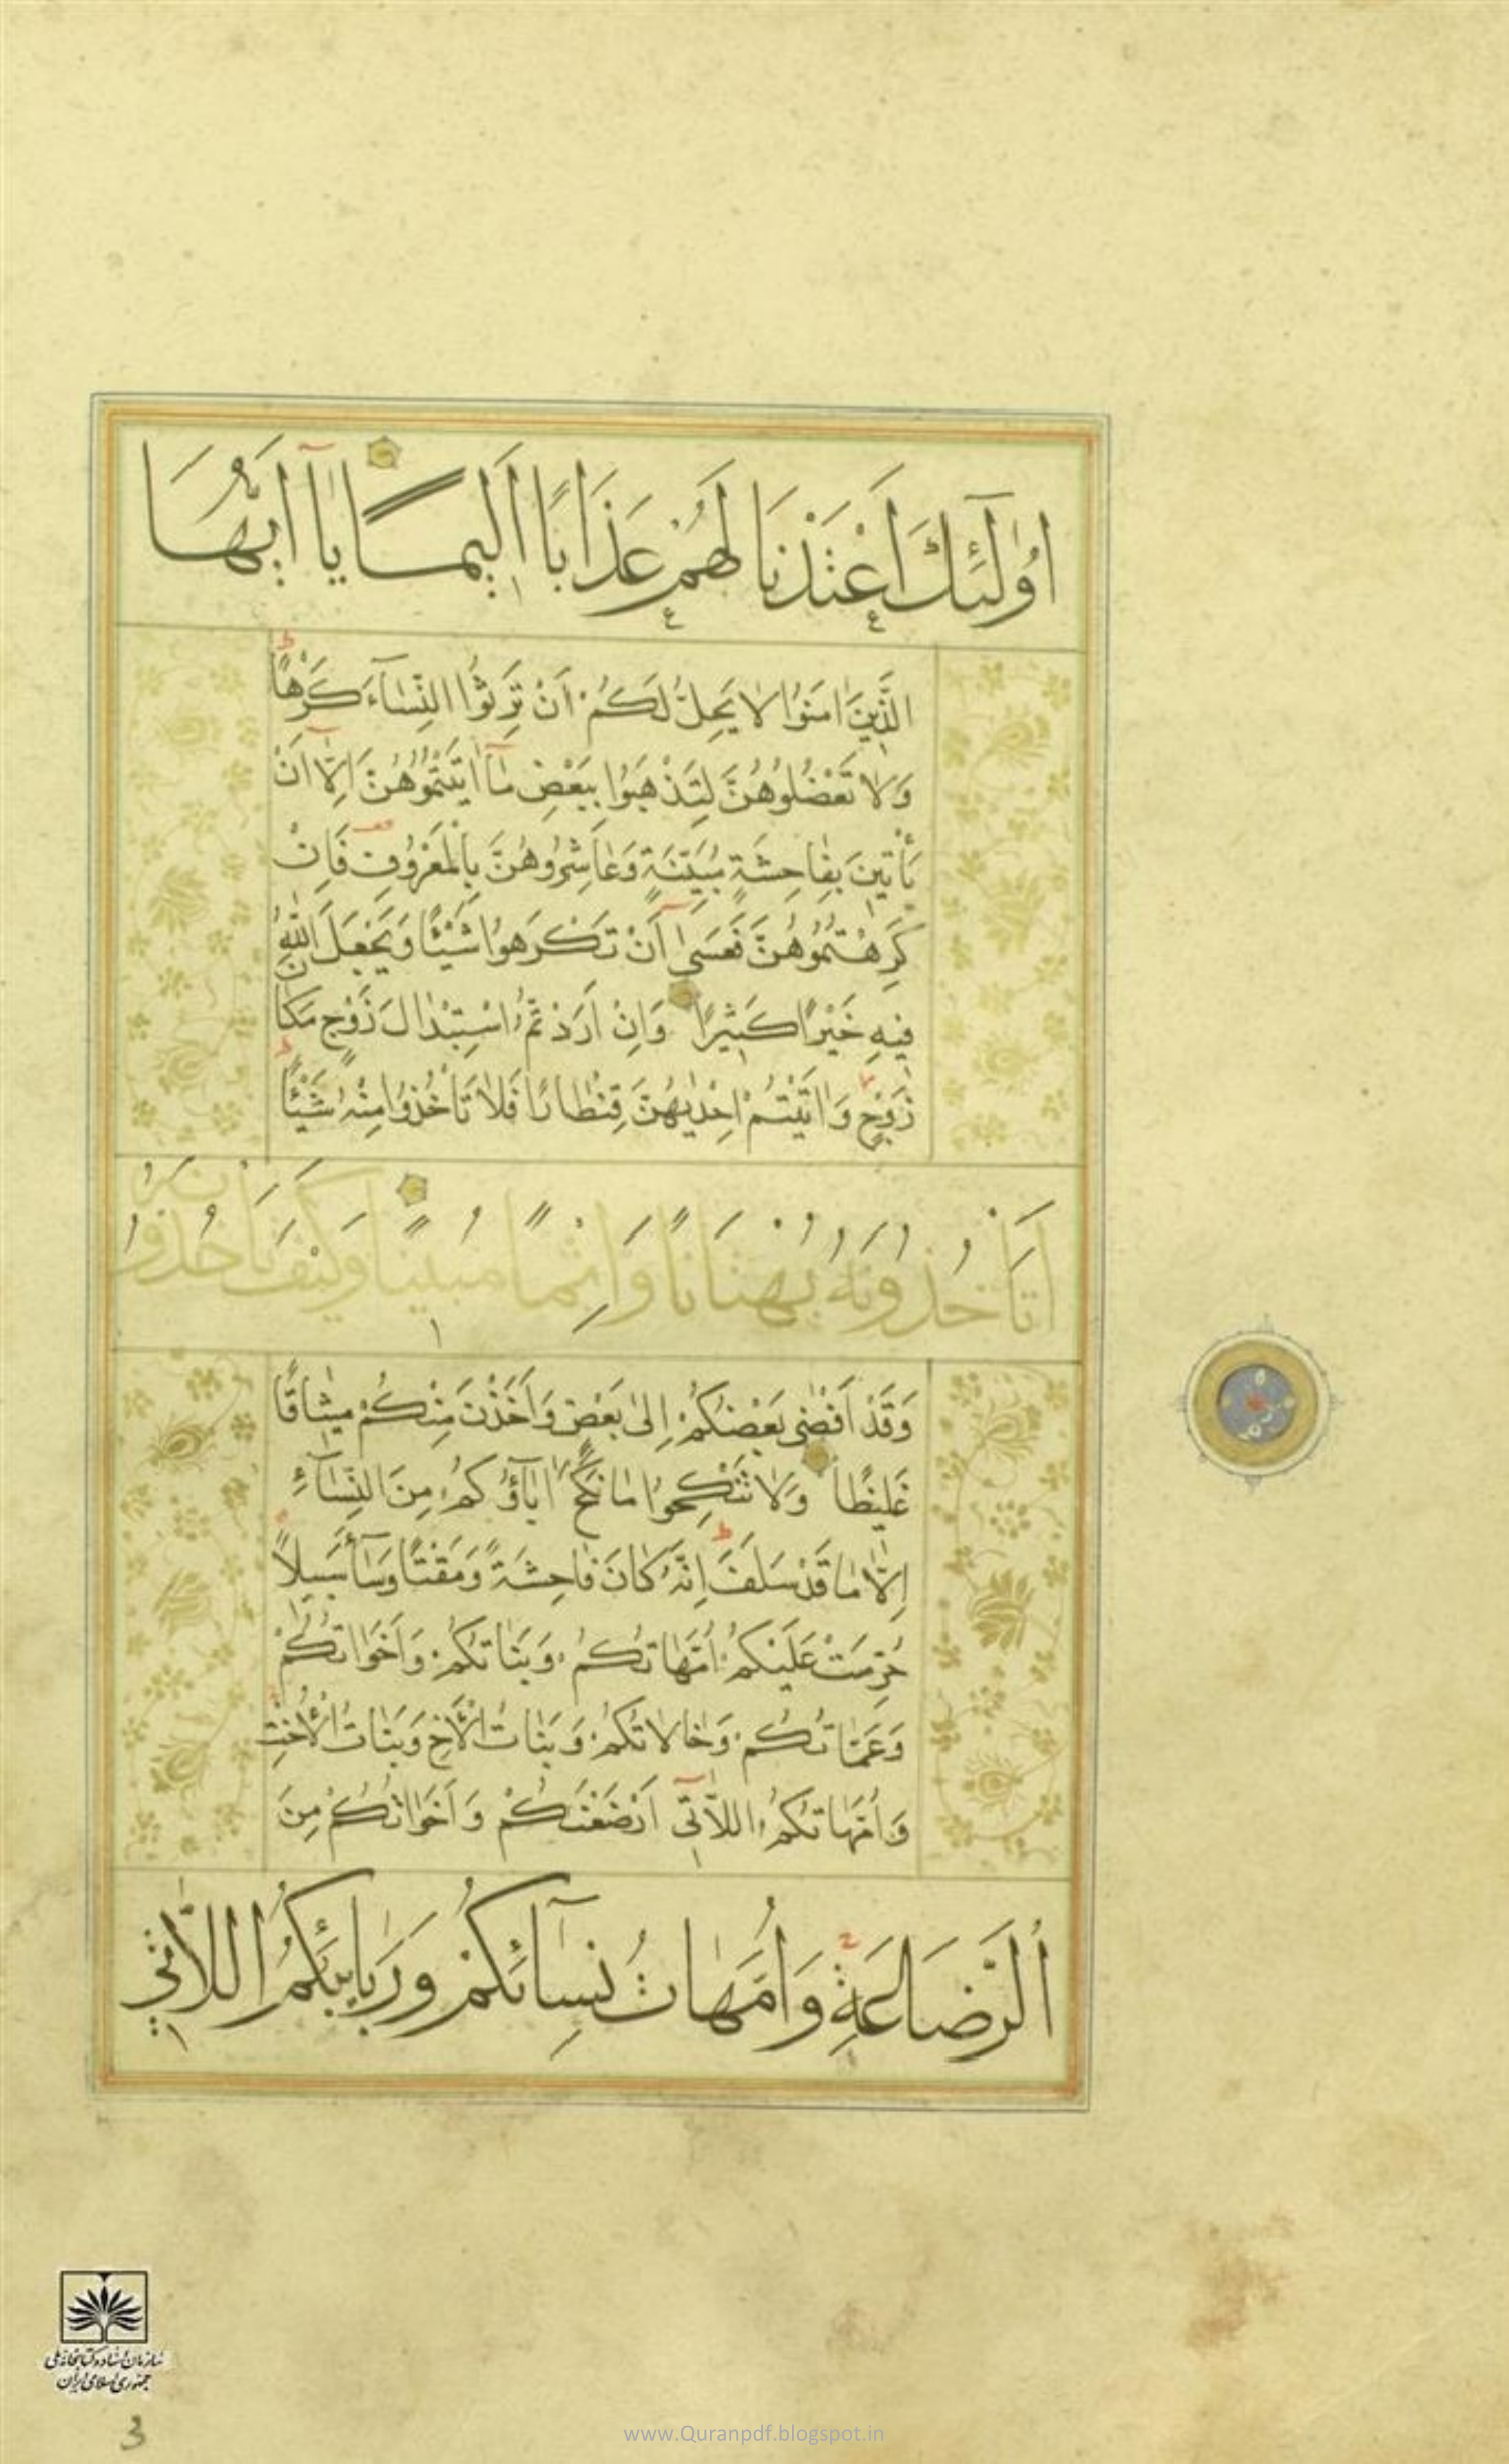 اُولٰٓئِكَ اَعْتَدْنَا لَهُمْ عَذَابًا اَلٖيمًا يٰٓا اَيُّهَا
الَّذٖينَ اٰمَنُوا لَا يَحِلُّ لَكُمْ اَنْ تَرِثُوا النِّسَآءَ كَرْهًا
وَلَا تَعْضُلُوهُنَّ لِتَذْهَبُوا بِبَعْضِ مَآ اٰتَيْتُمُوهُنَّ اِلَّآ اَنْ
يَأْتٖينَ بِفَاحِشَةٍ مُبَيِّنَةٍ وَعَاشِرُوهُنَّ بِالْمَعْرُوفِ فَاِنْ
كَرِهْتُمُوهُنَّ فَعَسٰٓى اَنْ تَكْرَهُوا شَيْئًا وَيَجْعَلَ اللّٰهُ
فٖيهِ خَيْرًا كَثٖيرًا وَاِنْ اَرَدْتُمُ اسْتِبْدَالَ زَوْجٍ مَكَانَ
زَوْجٍ وَاٰتَيْتُمْ اِحْدٰيهُنَّ قِنْطَارًا فَلَا تَأْخُذُوا مِنْهُ شَيْئًا
اَتَأْخُذُونَهُ بُهْتَانًا وَاِثْمًا مُبٖينًا وَكَيْفَ تَأْخُذُونَهُ
وَقَدْ اَفْضٰى بَعْضُكُمْ اِلٰى بَعْضٍ وَاَخَذْنَ مِنْكُمْ مٖيثَاقًا
غَلٖيظًا وَلَا تَنْكِحُوا مَا نَكَحَ اٰبَآؤُكُمْ مِنَ النِّسَآءِ
اِلَّا مَا قَدْ سَلَفَ اِنَّهُ كَانَ فَاحِشَةً وَمَقْتًا وَسَآءَ سَبٖيلًا
حُرِّمَتْ عَلَيْكُمْ اُمَّهَاتُكُمْ وَبَنَاتُكُمْ وَاَخَوَاتُكُمْ
وَعَمَّاتُكُمْ وَخَالَاتُكُمْ وَبَنَاتُ الْاَخِ وَبَنَاتُ الْاُخْتِ
وَاُمَّهَاتُكُمُ اللَّاتٖٓى اَرْضَعْنَكُمْ وَاَخَوَاتُكُمْ مِنَ
الرَّضَاعَةِ وَاُمَّهَاتُ نِسَآئِكُمْ وَرَبَآئِبُكُمُ اللَّاتٖى
سازمان اسناد و کتابخانه ملی
جمهوری اسلامی ایران
3
www.Quranpdf.blogspot.in